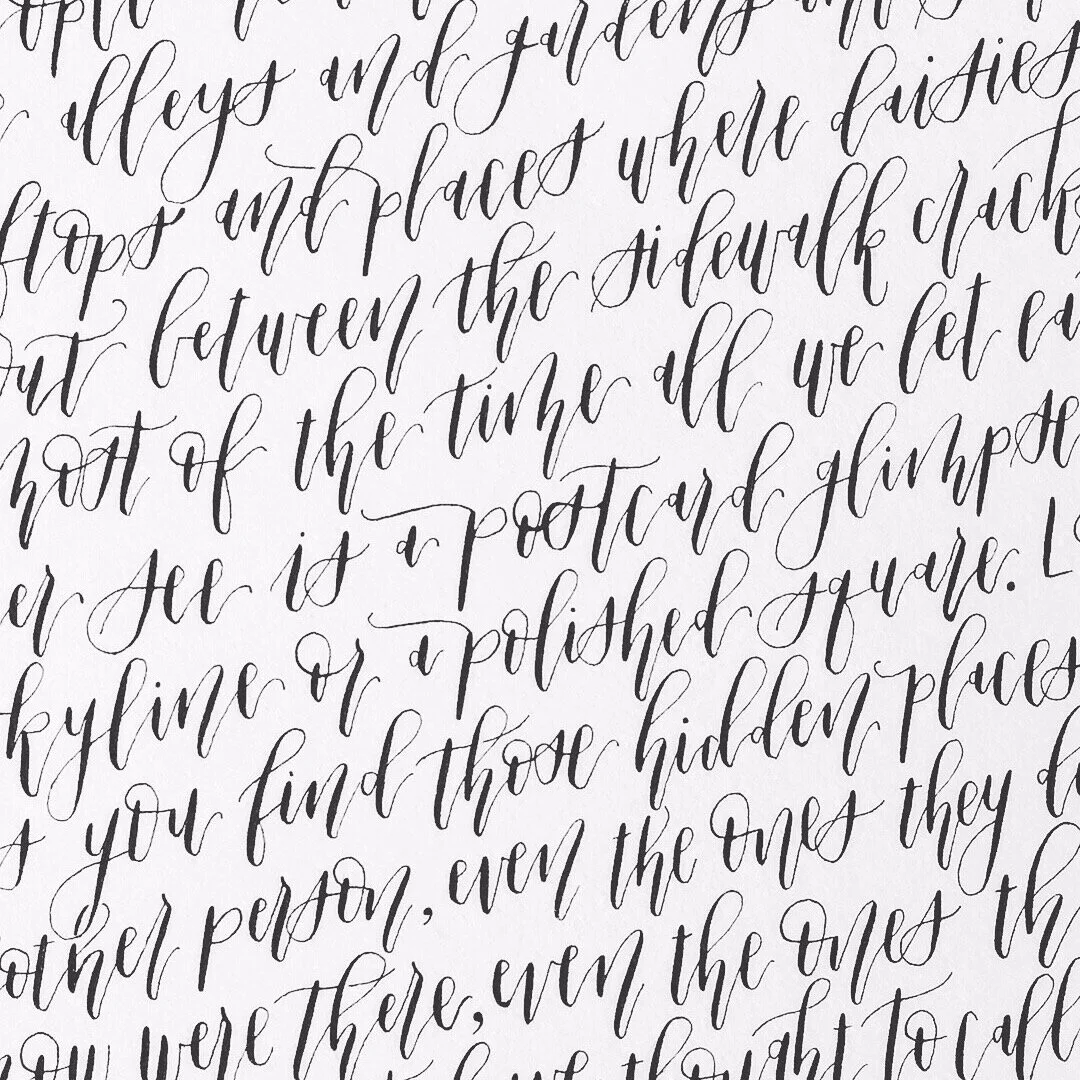 alleys and gardens
ftops and places where daisies
out between the sidewalk cracks
most of the time all we let ea
er see is a postcard glimpse
kyline or a polished square. L
s you find those hidden places
other person, even the ones they d
you were there, even the ones th
thought to call